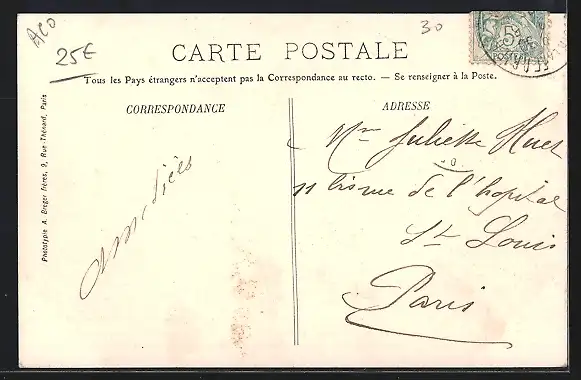 ACO
25€
30
5
POSTES
CARTE POSTALE
Tous les Pays étrangers n'acceptent pas la Correspondance au recto. — Se renseigner à la Poste.
CORRESPONDANCE
ADRESSE
Phototypie A. Breger frères, 9, Rue Thénard, Paris
amitiés
Juliette Huet
11 de l'hopital
St Louis
Paris